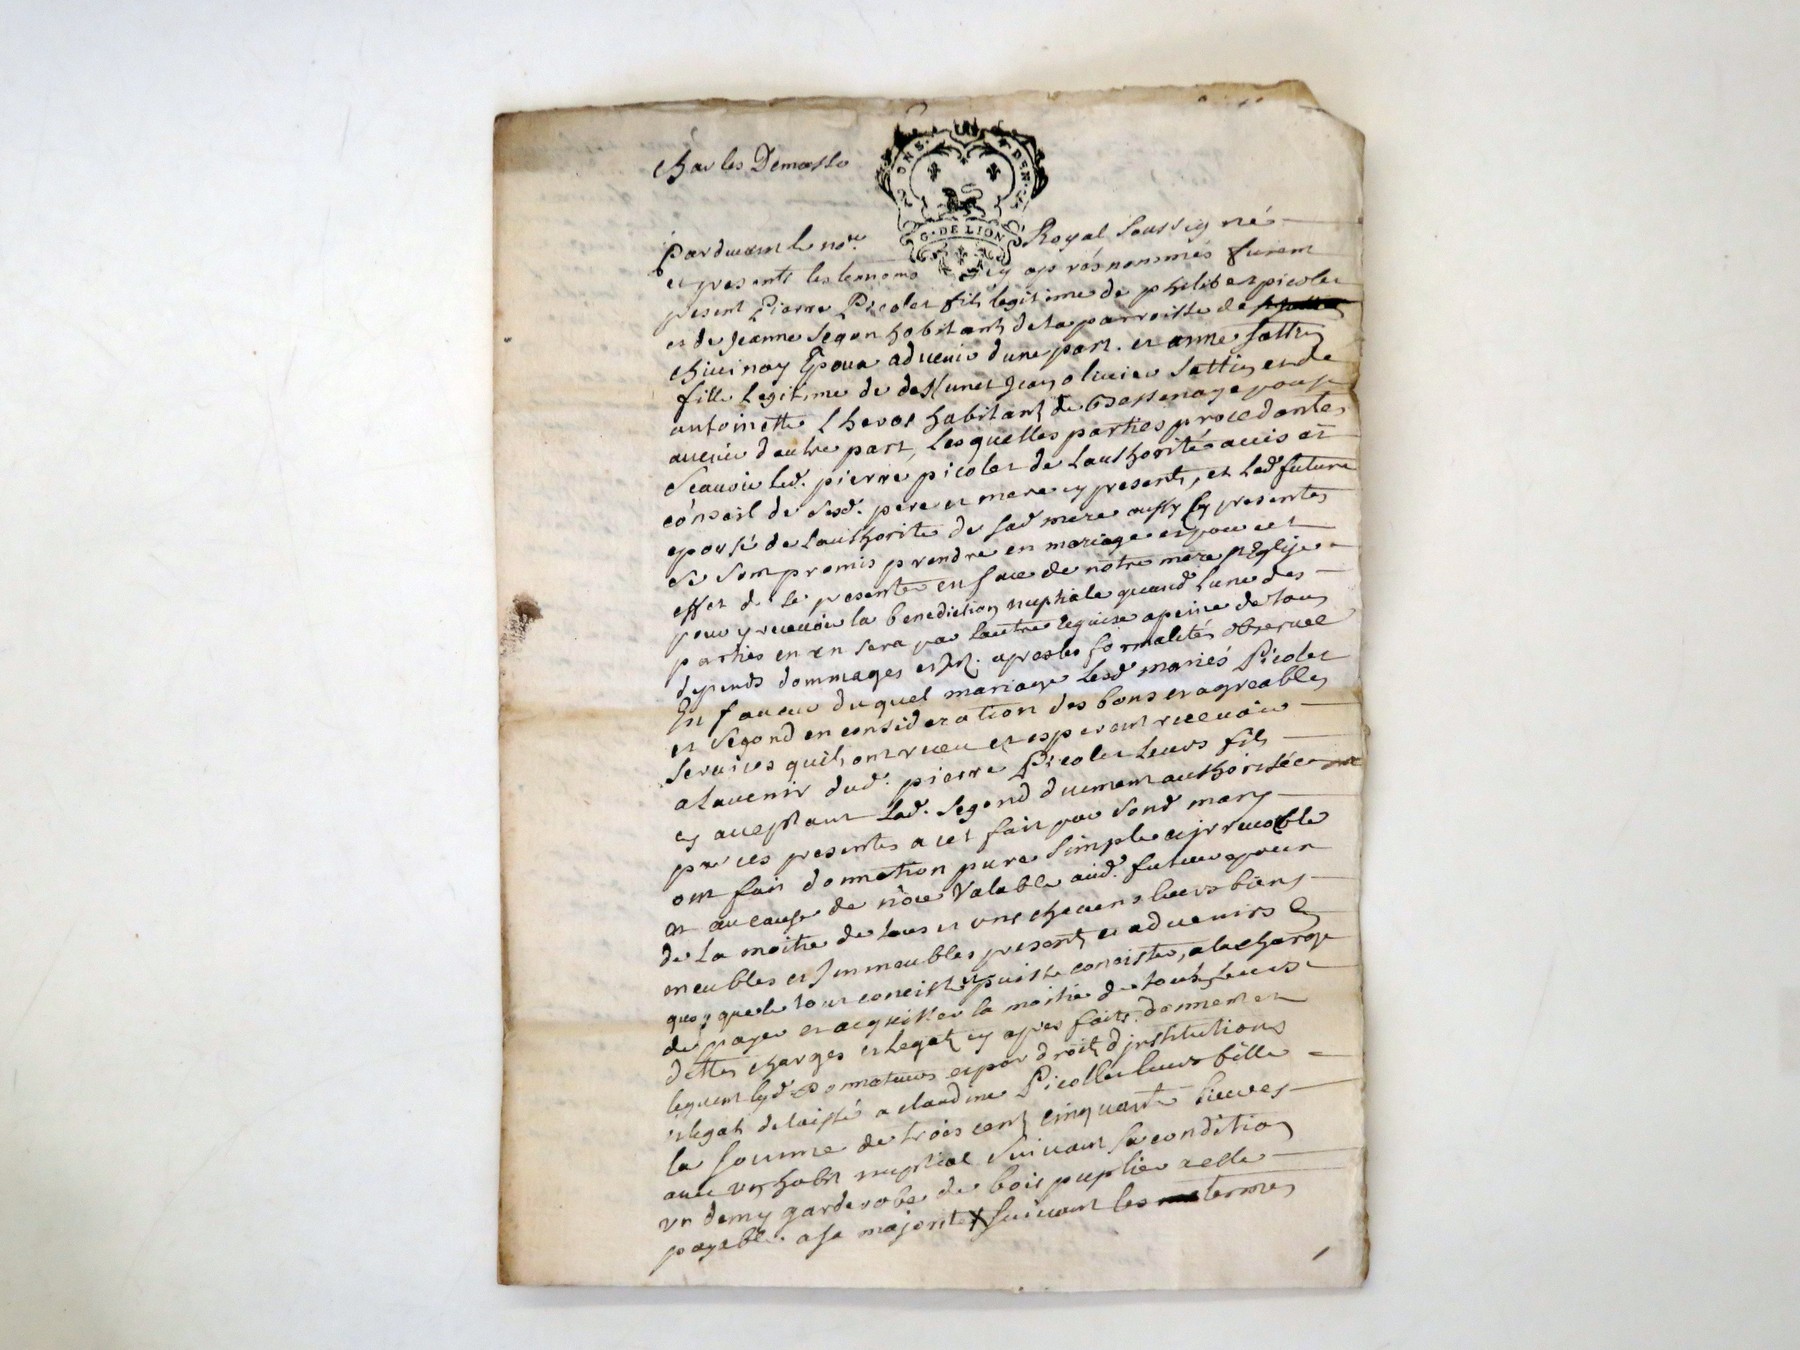 Charles Demasso
ONS. DEN.
G. DE LION
Pardevant le nore Royal soussigné
et presents les temoins cy après nommés furent
present Pierre Picolet fils legitime de philibert picolet
et de Jeanne Segon habitant de la parroisse de
epoux advenir d'une part. et anne Sattin
fille legitime de deffunct Jean olivier Sattin et de
antoinette habitant de
avenir d'autre part, lesquelles parties procedantes
scavoir led. pierre picolet de l'authorité avis et
conseil de sesd. pere et mere cy presents, et lad. future
epouse de l'authorité de sad. mere aussy cy presentes
se sont promis prendre en mariage et pour cet
effet de se presenter en face de notre mere Ste Eglise
pour y recevoir la benediction nuptiale quand l'une des
parties en sera par l'autre requise a peine de tous
depends dommages et Int. apres les formalités observee
En faveur duquel mariage lesd. mariés Picolet
et Segond en consideration des bons et agreables
services quils ont receu et esperent recevoir
a l'avenir dud. pierre Picolet leurs fils
cy acceptant lad. Segond duement authorisée
par ces presentes a cet fait par sond. mary
ont fait donnation pure simple et irrevocable
et au cause de nôce valable aud. futur epoux
de la moitie de tous et uns chacuns leurs biens
meubles et Immeubles presents et advenirs en
quoy que le tout consiste et puisse consister, a la charge
de payer et acquitter la moitie de touts leurs
dettes charges et legats cy apres faits. donnent et
leguent lesd. Donnateurs et par droits d'institutions
et legats delaissé a claudine Picollet leurs fille
la somme de trois cents cinquante livres
avec un habit nuptial suivant sa condition
un demy garderobe de bois puplier a elle
payable a sa majorité X suivant les termes